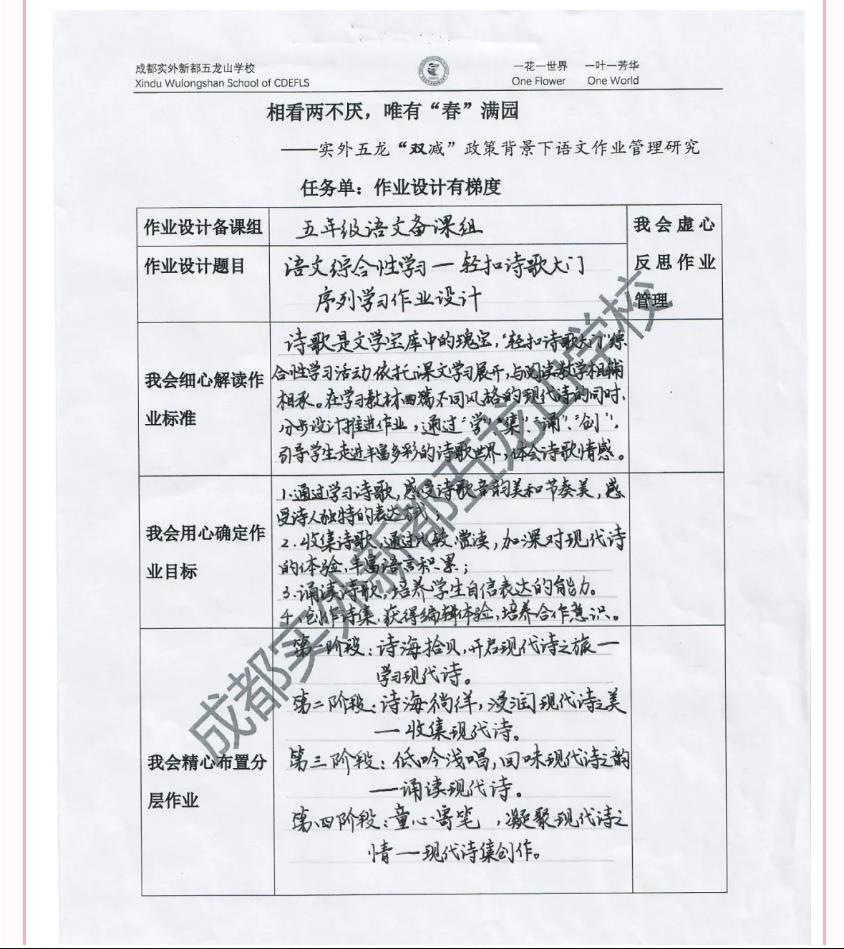 成都实外新都五龙山学校
Xindu Wulongshan School of CDEFLS
一花一世界 一叶一芳华
One Flower One World
相看两不厌，唯有“春”满园
——实外五龙“双减”政策背景下语文作业管理研究
任务单：作业设计有梯度
作业设计备课组
五年级语文备课组
我会虚心
反思作业
管理
作业设计题目
语文综合性学习—轻扣诗歌大门
序列学习作业设计
我会细心解读作
业标准
诗歌是文学宝库中的瑰宝，“轻扣诗歌大门”综
合性学习活动依托课文学习展开，与阅读教学相辅
相承。在学习教材四篇不同风格的现代诗的同时，
分步设计推进作业，通过“学”“集”“诵”“创”，
引导学生走进丰富多彩的诗歌世界，体会诗歌情感。
我会用心确定作
业目标
1.通过学习诗歌，感受诗歌音韵美和节奏美，感
受诗人独特的表达方式；
2.收集诗歌，通过比较赏读，加深对现代诗
的体验，丰富语言积累；
3.诵读诗歌，培养学生自信表达的能力。
4.创作诗集，获得编辑体验，培养合作意识。
我会精心布置分
层作业
第一阶段：诗海拾贝，开启现代诗之旅—
学习现代诗。
第二阶段：诗海徜徉，浸润现代诗之美
—收集现代诗。
第三阶段：低吟浅唱，回味现代诗之韵
—诵读现代诗。
第四阶段：童心寄笔，凝聚现代诗之
情—现代诗集创作。
成都实外新都五龙山学校